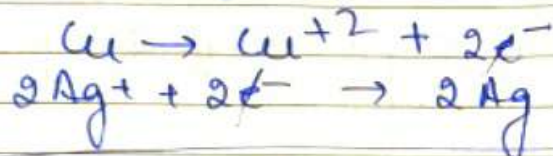 Cu → Cu⁺² + 2e⁻
2Ag⁺ + 2e⁻ → 2Ag